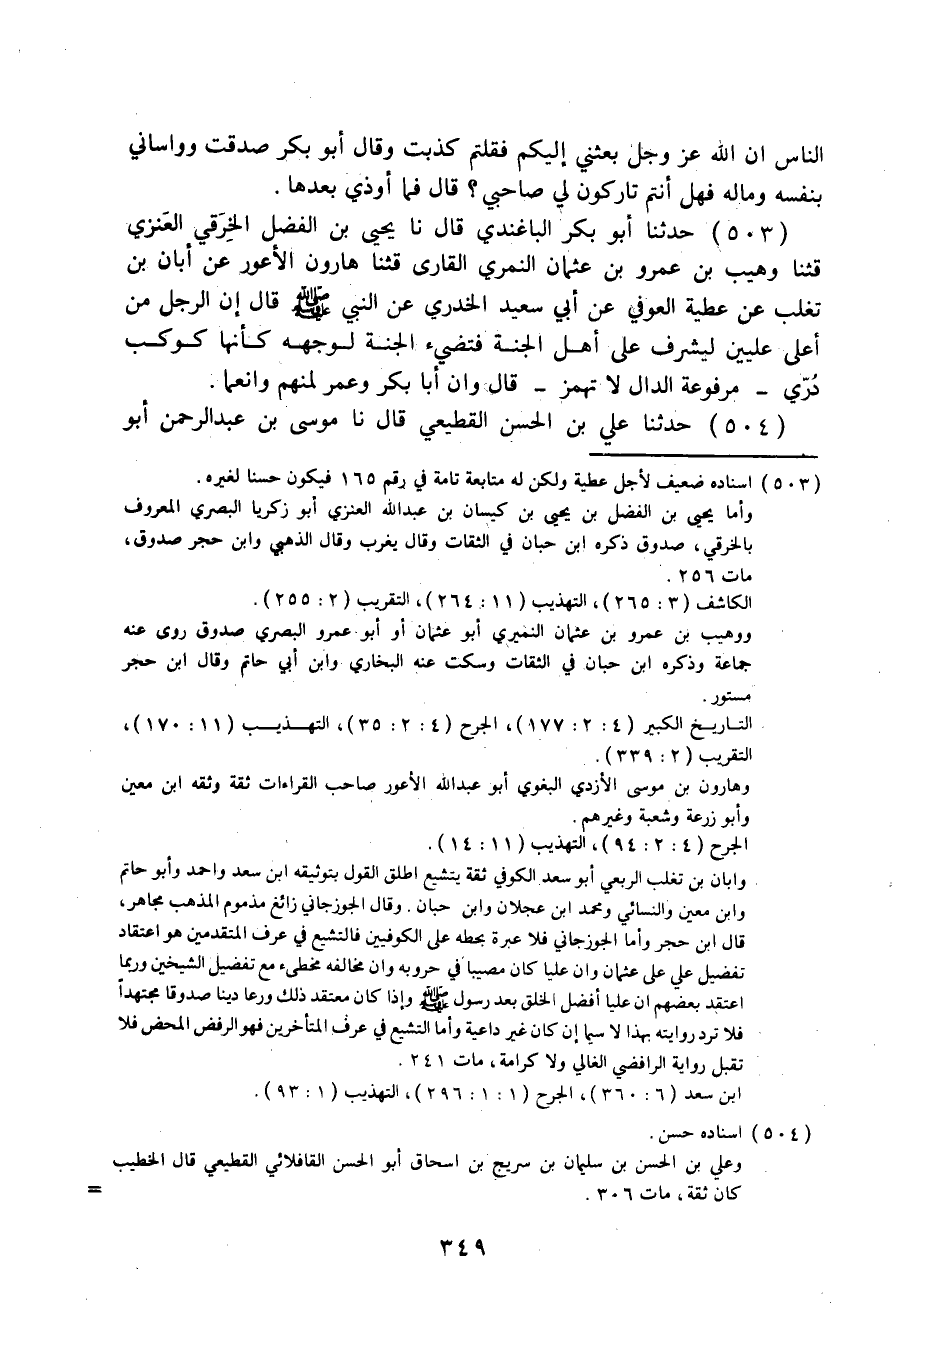 الناس ان الله عز وجل بعثني إليكم فقلتم كذبت وقال أبو بكر صدقت وواساني
بنفسه وماله فهل أنتم تاركون لي صاحبي؟ قال فما أوذي بعدها .
(٥٠٣) حدثنا أبو بكر الباغندي قال نا يحيى بن الفضل الخِرَقي العَنزي
قثنا وهيب بن عمرو بن عثمان النمري القارى قثنا هارون الأعور عن أبان بن
تغلب عن عطية العوفي عن أبي سعيد الخدري عن النبي ﷺ قال إن الرجل من
أعلى عليين ليشرف على أهل الجنة فتضيء الجنة لوجهه كأنها كوكب
دُرّي - مرفوعة الدال لا تهمز - قال وان أبا بكر وعمر لمنهم وانعما .
(٥٠٤) حدثنا علي بن الحسن القطيعي قال نا موسى بن عبدالرحمن أبو
(٥٠٣) اسناده ضعيف لأجل عطية ولكن له متابعة تامة في رقم ١٦٥ فيكون حسنا لغيره .
وأما يحيى بن الفضل بن يحيى بن كيسان بن عبدالله العنزي أبو زكريا البصري المعروف
بالخرقي، صدوق ذكره ابن حبان في الثقات وقال يغرب وقال الذهبي وابن حجر صدوق،
مات ٢٥٦ .
الكاشف (٣ : ٢٦٥)، التهذيب (١١ : ٢٦٤)، التقريب (٢ : ٢٥٥).
ووهيب بن عمرو بن عثمان النميري أبو عثمان أو أبو عمرو البصري صدوق روى عنه
جماعة وذكره ابن حبان في الثقات وسكت عنه البخاري وابن أبي حاتم وقال ابن حجر
مستور .
التاريخ الكبير (٤ : ٢ : ١٧٧)، الجرح (٤ : ٢ : ٣٥)، التهذيب (١١ : ١٧٠)،
التقريب (٢ : ٣٣٩).
وهارون بن موسى الأزدي البغوي أبو عبدالله الأعور صاحب القراءات ثقة وثقه ابن معين
وأبو زرعة وشعبة وغيرهم.
الجرح (٤ : ٢ : ٩٤)، التهذيب (١١ : ١٤).
وابان بن تغلب الربعي أبو سعد الكوفي ثقة يتشيع اطلق القول بتوثيقه ابن سعد واحمد وأبو حاتم
وابن معين والنسائي ومحمد ابن عجلان وابن حبان . وقال الجوزجاني زائغ مذموم المذهب مجاهر،
قال ابن حجر وأما الجوزجاني فلا عبرة بحطه على الكوفيين فالتشيع في عرف المتقدمين هو اعتقاد
تفضيل علي على عثمان وان عليا كان مصيبا في حروبه وان مخالفه مخطىء مع تفضيل الشيخين وربما
اعتقد بعضهم ان عليا أفضل الخلق بعد رسول ﷺ وإذا كان معتقد ذلك ورعا دينا صدوقا مجتهداً
فلا ترد روايته بهذا لا سيما إن كان غير داعية وأما التشيع في عرف المتأخرين فهو الرفض المحض فلا
تقبل رواية الرافضي الغالي ولا كرامة، مات ٢٤١ .
ابن سعد (٦ : ٣٦٠)، الجرح (١ : ١ : ٢٩٦)، التهذيب (١ : ٩٣).
(٥٠٤) اسناده حسن .
وعلي بن الحسن بن سليمان بن سريج بن اسحاق أبو الحسن القافلائي القطيعي قال الخطيب
كان ثقة، مات ٣٠٦ .
=
٣٤٩